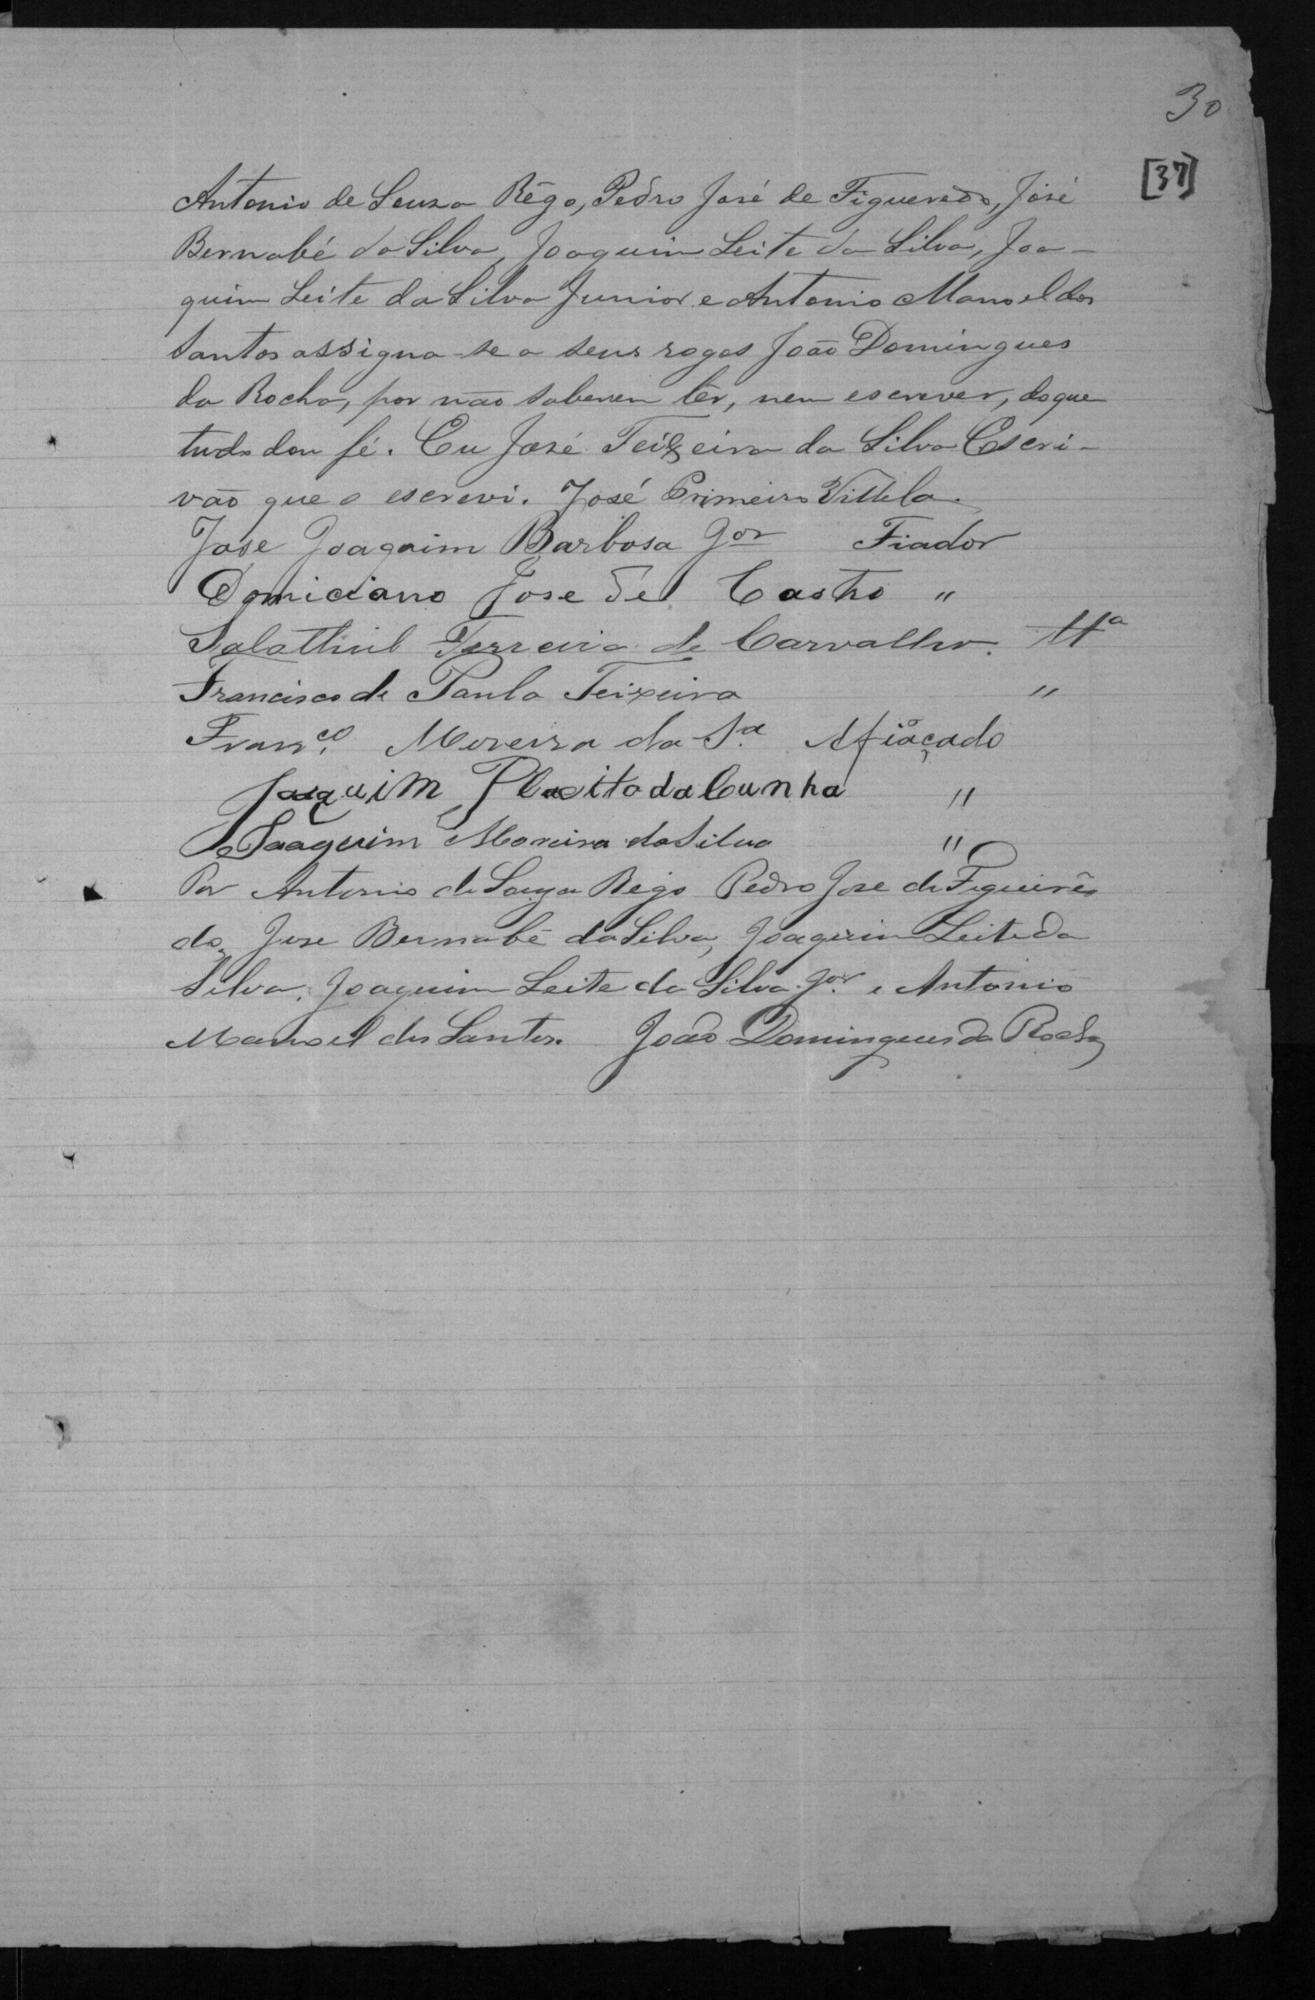 30
[37]
Antonio de Souza Rêgo, Pedro José de Figueredo, José
Bernabé da Silva, Joaquim Leite da Silva, Joa-
quim Leite da Silva Junior e Antonio Manoel dos
Santos assigna-se a seus rogos João Domingues
da Rocha, por não saberem lêr, nem escrever, do que
tudo dou fé. Eu José Teixeira da Silva Escri-
vão que o escrevi. José Primeiro Villela.
Jose Joaquim Barbosa Jor Fiador
Domiciano Jose de Castro "
Salathiel Ferreira de Carvalho. Tta
Francisco de Paula Teixeira "
Franco. Moreira da Sa Afiãçado
Joaquim Placito da Cunha "
Joaquim Moreira da Silva "
Por Antonio de Souza Rego Pedro Jose de Figueirê
do, Jose Bernabé da Silva, Joaquim Leite da
Silva, Joaquim Leite da Silva Jor. e Antonio
Manoel dos Santos. João Domingues da Rocha